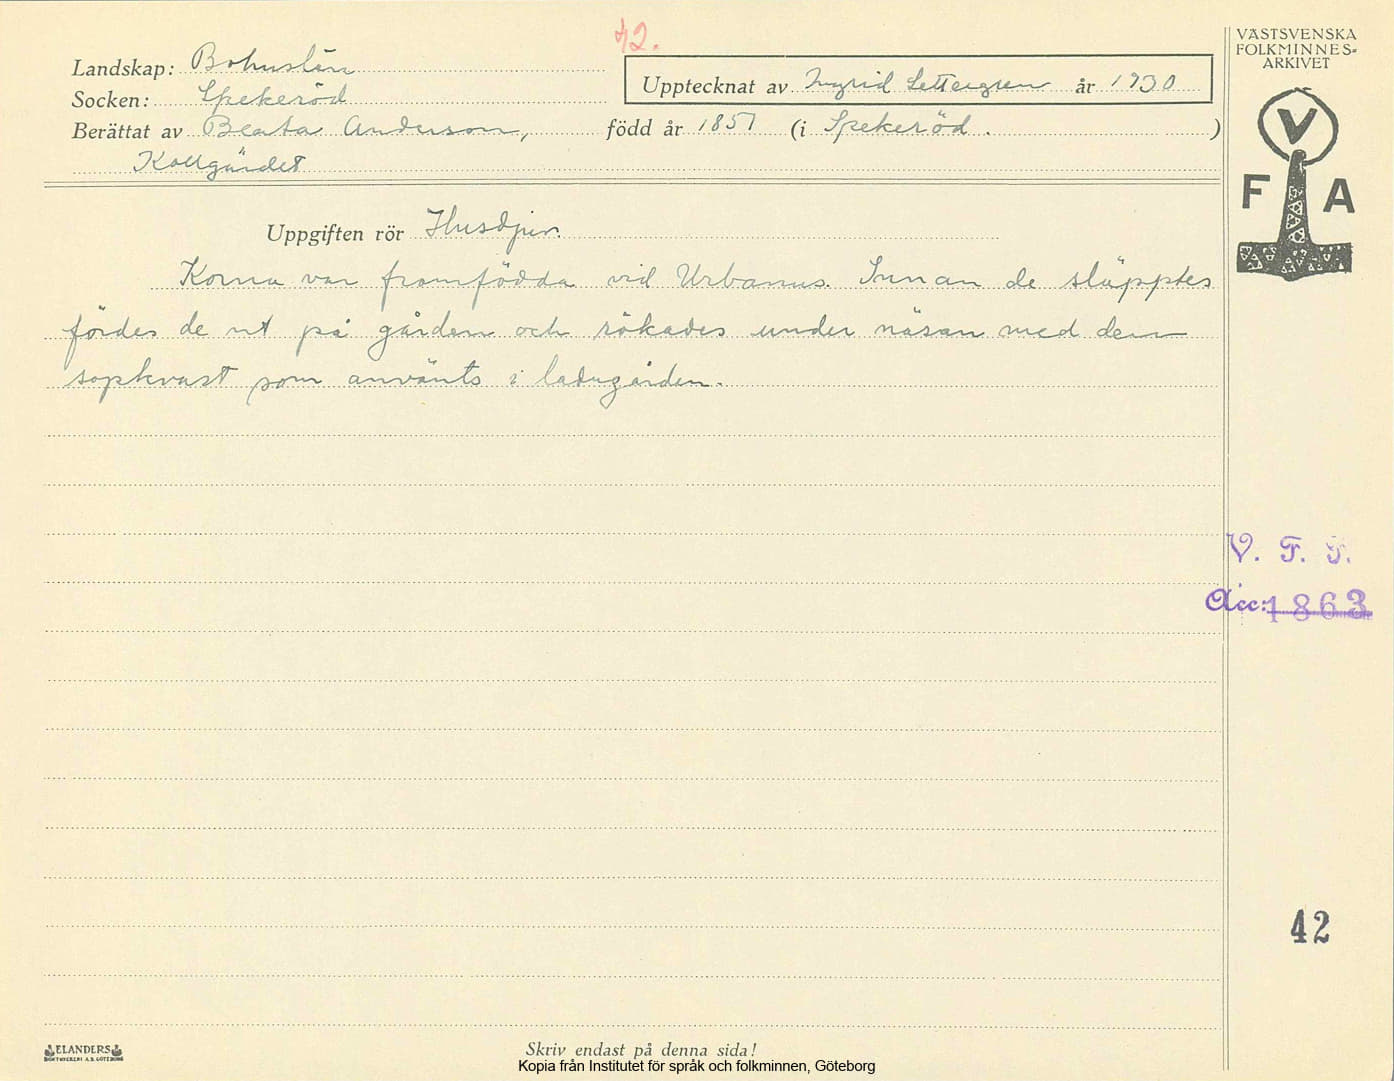 42.
VÄSTSVENSKA
FOLKMINNES-
ARKIVET
Landskap: Bohuslän
Upptecknat av Ingrid Settergren år 1930
Socken: Spekeröd
Berättat av Beata Anderson, född år 1851 (i Spekeröd. )
Kollgärdet
V
F A
Uppgiften rör Husdjur.
Korna var framfödda vid Urbanus. Innan de släpptes
fördes de ut på gården och rökades under näsan med den
sopkvast som använts i ladugården.
V. F. F.
Acc: 1863
42
ELANDERS
BOKTRYCKERI A.B. GÖTEBORG
Skriv endast på denna sida!
Kopia från Institutet för språk och folkminnen, Göteborg